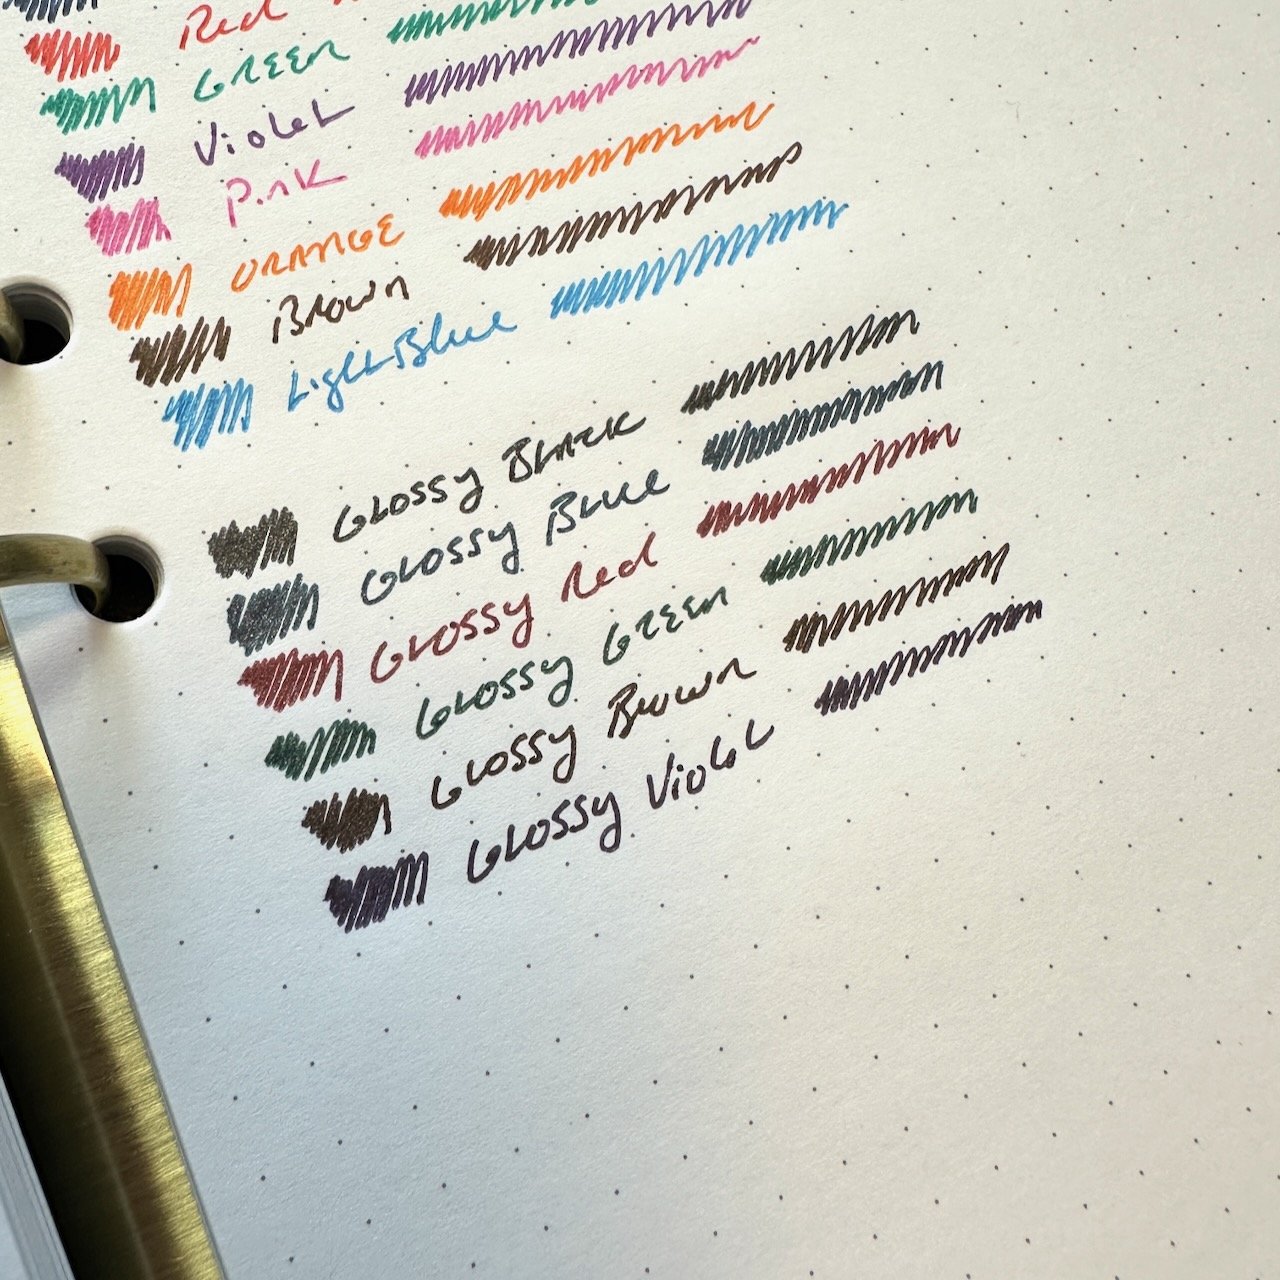 Red
GREEN
Violet
Pink
ORANGE
Brown
Light Blue
GLOSSY BLACK
GLOSSY Blue
GLOSSY Red
GLOSSY GREEN
GLOSSY Brown
GLOSSY Violet